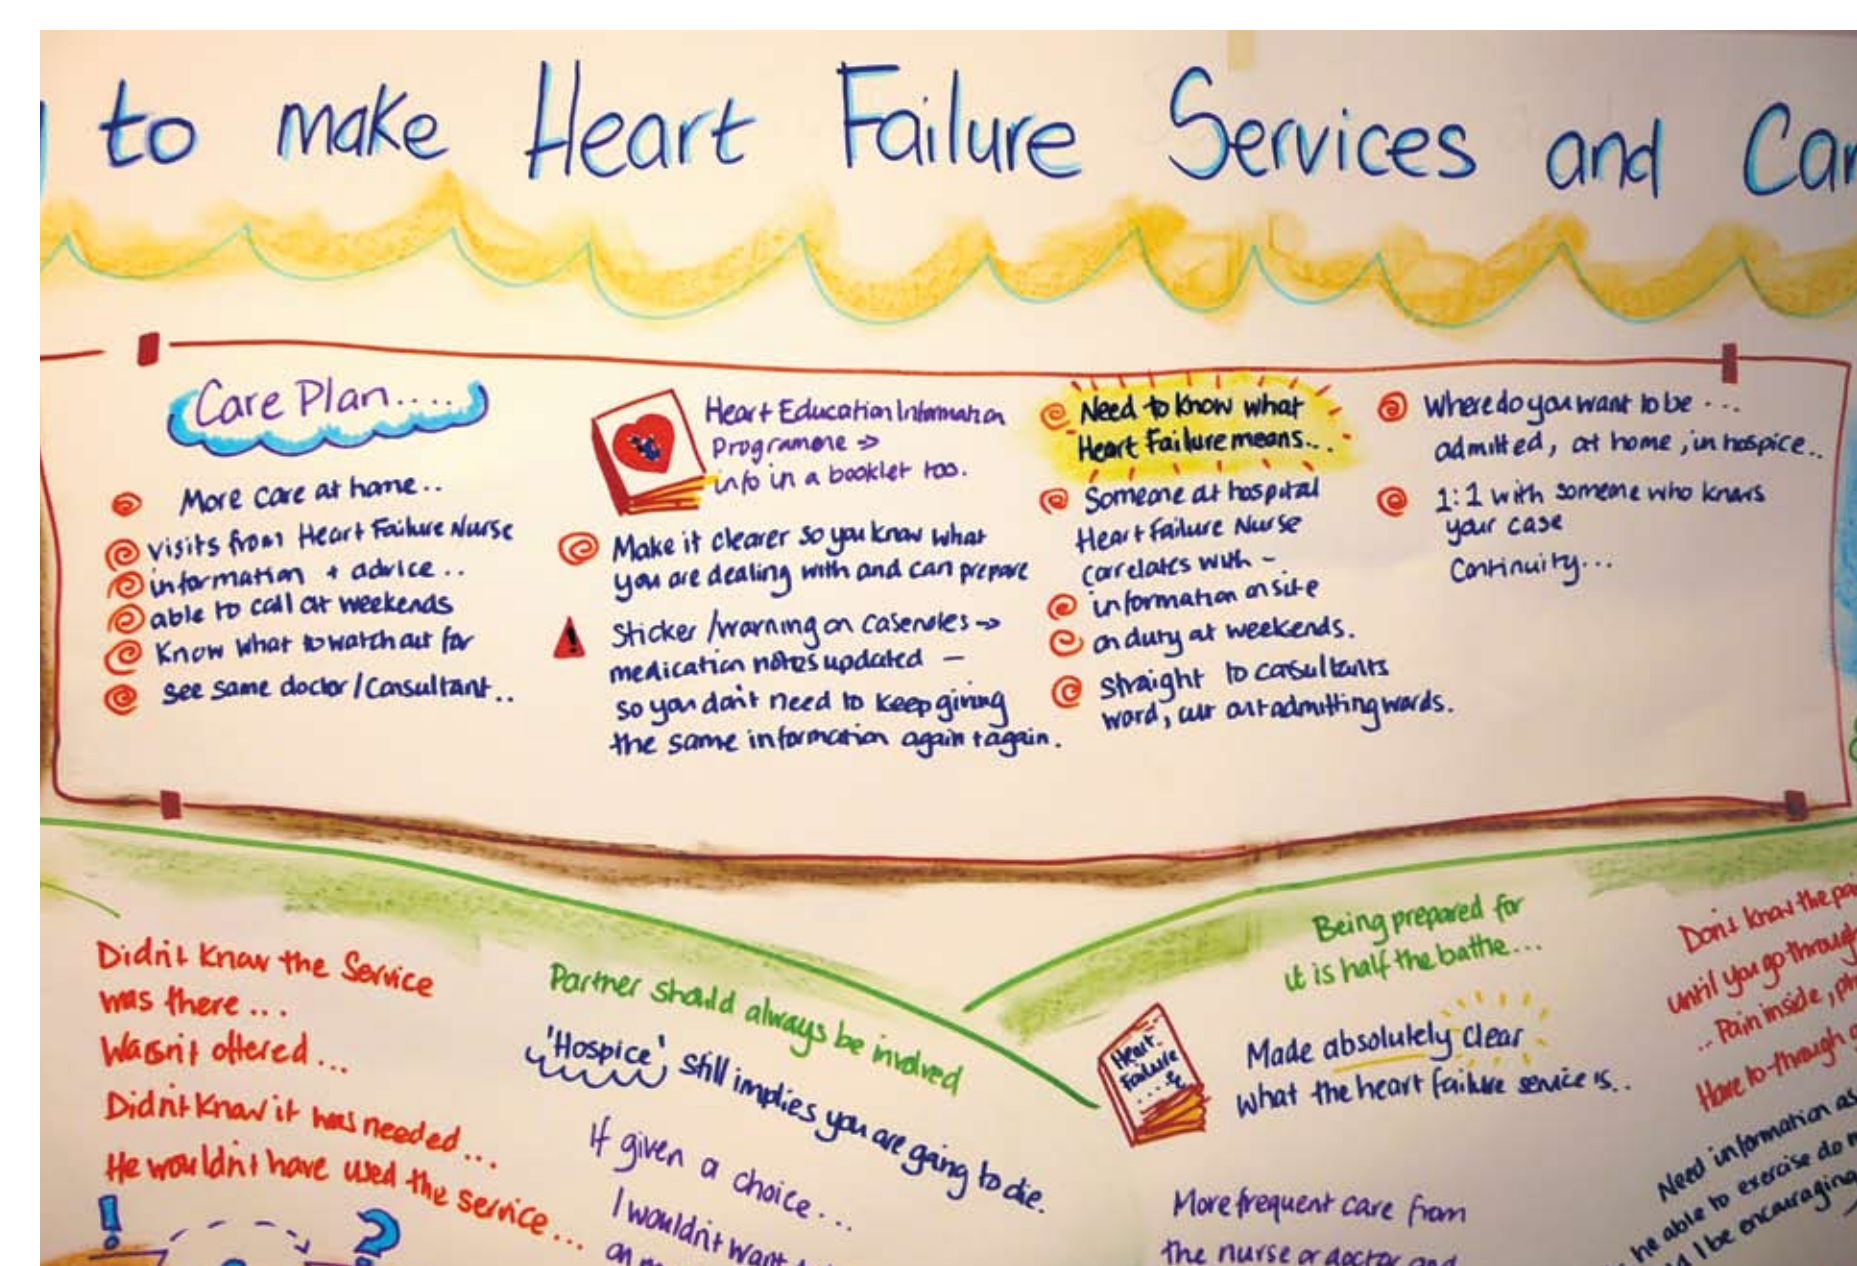 to make Heart Failure Services and Car
Care Plan....
More care at home..
visits from Heart Failure Nurse
information + advice..
able to call at weekends
Know what to watch out for
see same doctor / Consultant..
Heart Education Information
Programme →
info in a booklet too.
Make it clearer so you know what
you are dealing with and can prepare
Sticker / warning on casenotes →
medication notes updated –
so you don't need to keep giving
the same information again + again.
Need to know what
Heart Failure means..
Someone at hospital
Heart Failure Nurse
correlates with –
information on site
on duty at weekends.
straight to consultants
ward, cut out admitting wards.
Where do you want to be ...
admitted, at home, in hospice..
1:1 with someone who knows
your case
Continuity...
Didn't know the Service
was there...
Wasn't offered...
Didn't know it was needed...
He wouldn't have used the service...
Partner should always be involved
'Hospice' still implies you are going to die.
If given a choice...
I wouldn't want
Being prepared for
it is half the battle...
Heart
Failure
Made absolutely clear
what the heart failure service is..
More frequent care from
the nurse or doctor and
Don't know the
until you go through
.. Pain inside,
Have to through
Need information as
be able to exercise do
I be encouraging